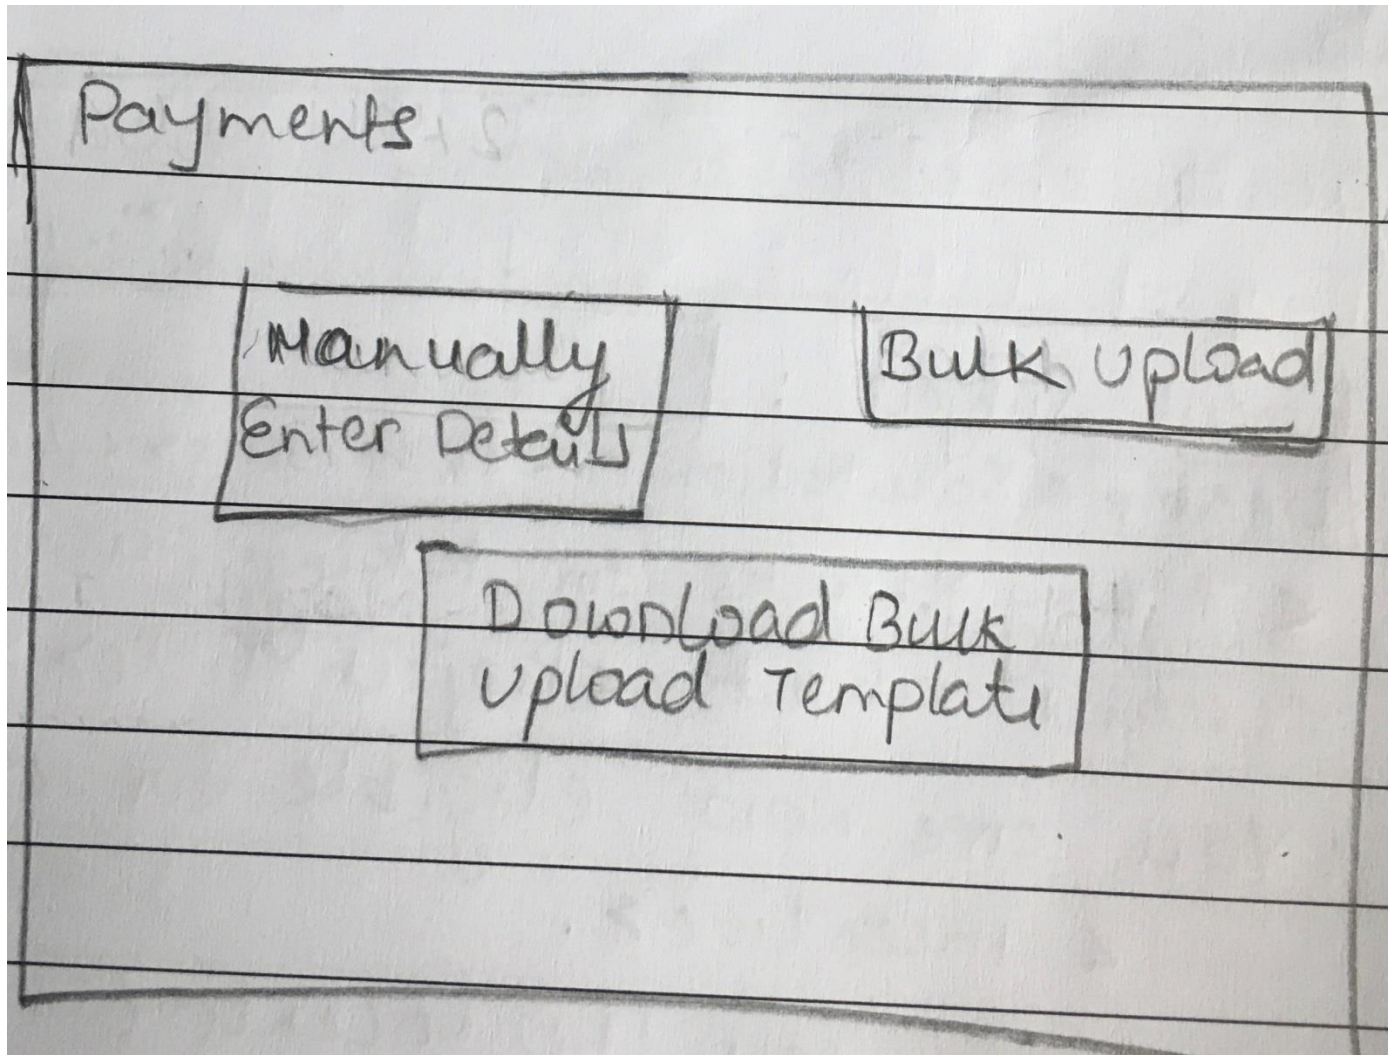 Payments
Manually
Enter Details
Bulk Upload
Download Bulk
Upload Template